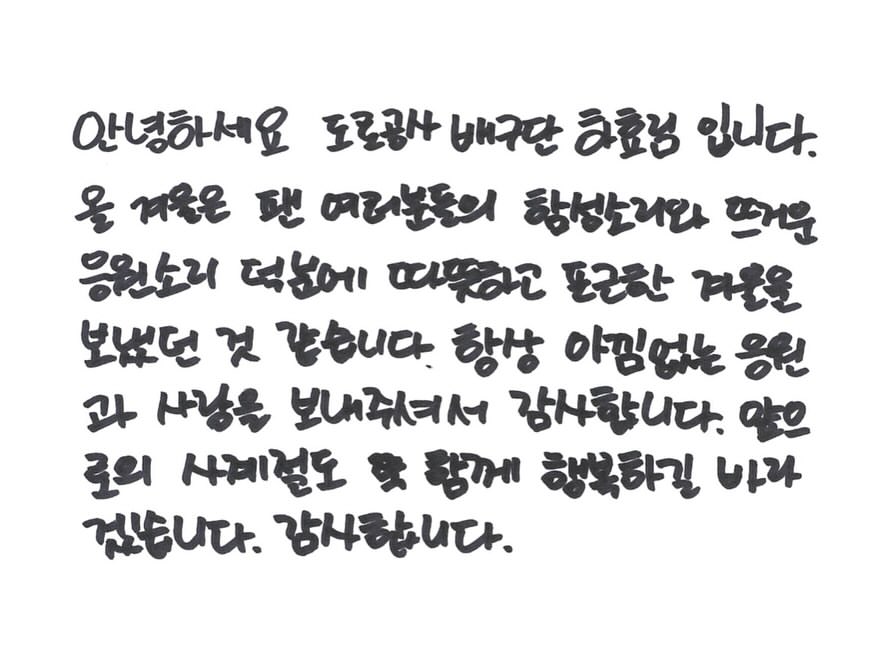 안녕하세요 도로공사 배구단 하효림 입니다.
올 겨울은 팬 여러분들의 함성소리와 뜨거운
응원소리 덕분에 따뜻하고 포근한 겨울을
보냈던 것 같습니다. 항상 아낌없는 응원
과 사랑을 보내주셔서 감사합니다. 앞으
로의 사계절도 함께 행복하길 바라
겠습니다. 감사합니다.